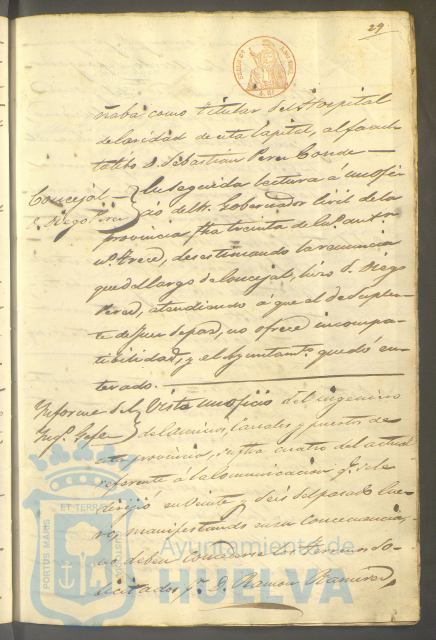 29
naba como titular del Hospital
de Caridad de esta Capital, al facul-
tatibo D. Sebastian Perez Conde-
Concejal
D. Diego Perez
En seguida lectura á un ofi-
cio del Sr. Gobernador Civil de la
provincia, fha treinta de
desestimando la renuncia
que del cargo de Concejal, hizo D. Diego
Perez, atendiendo á que el de Suplen-
te de Juez de paz, no ofrece incompa-
tibilidad, y el Ayuntamto. quedó en-
terado.
Informe del
Ingo. Gefe
Vista un oficio del ingeniero
de Caminos, Canales y puertos de
esta provincia, su fha cuatro del actual
referente á la comunicacion qe. se le
dirijió en veinte y seis del pasado Ene-
ro, manifestando que en su consecuencia,
no deben
licitados pr. D. Ramon Ramirez,
PORTUS MARIS
ET TERRE
CUSTODIA
Ayuntamiento de
HUELVA